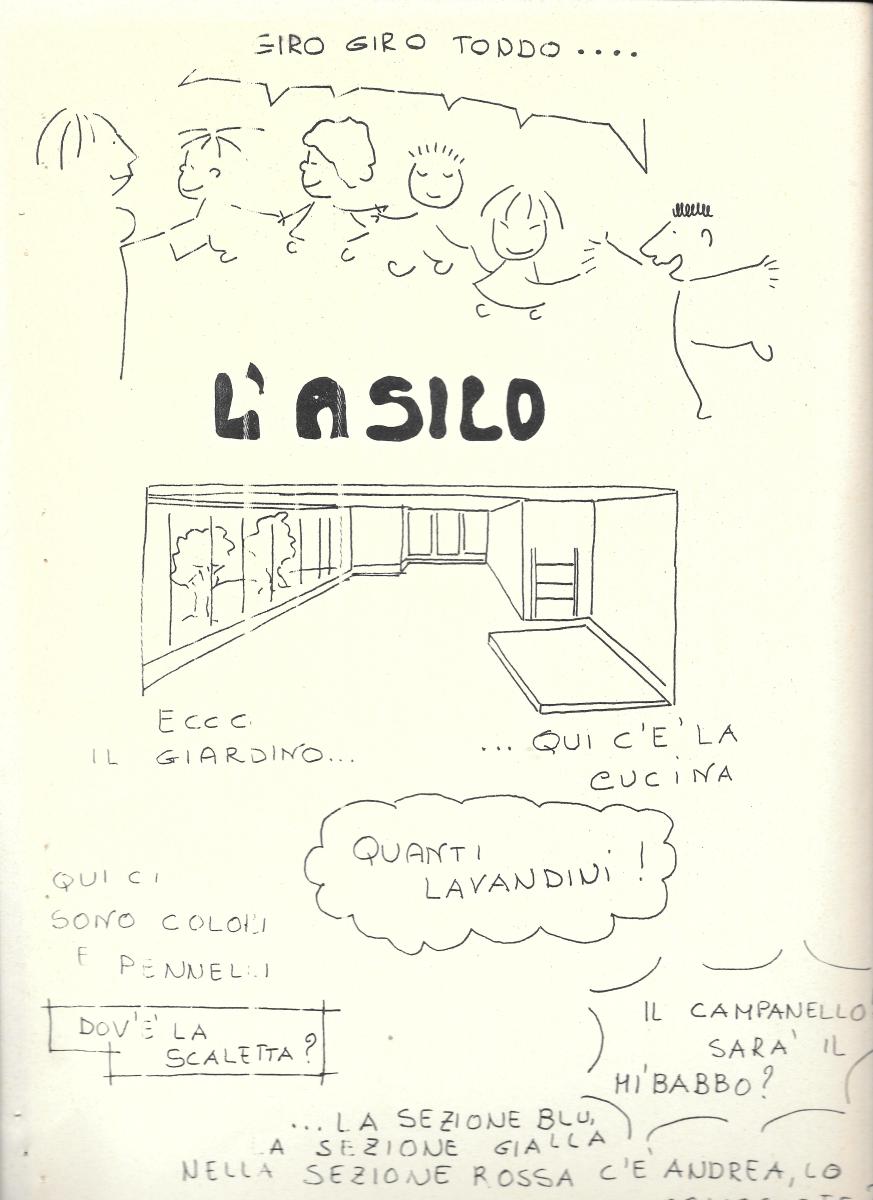 GIRO GIRO TONDO....
L'ASILO
ECCO
IL GIARDINO...
... QUI C'E' LA
CUCINA
QUANTI
LAVANDINI !
QUI CI
SONO COLORI
E PENNELLI
DOV'E' LA
SCALETTA?
IL CAMPANELLO
SARA' IL
MI' BABBO?
...LA SEZIONE BLU,
LA SEZIONE GIALLA
NELLA SEZIONE ROSSA C'E' ANDREA, LO